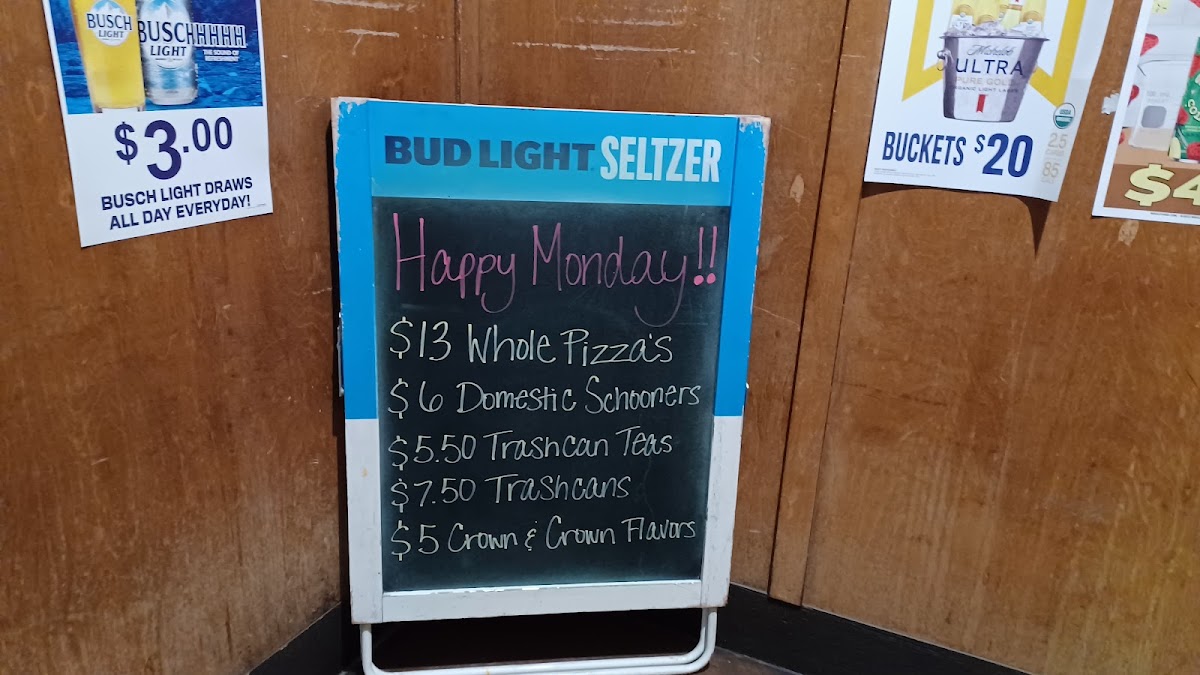 BUSCH
LIGHT
BUSCHHHHH
LIGHT
THE SOUND OF
REFRESHMENT
$3.00
BUSCH LIGHT DRAWS
ALL DAY EVERYDAY!
BUD LIGHT SELTZER
Happy Monday!!
$13 Whole Pizza's
$6 Domestic Schooners
$5.50 Trashcan Teas
$7.50 Trashcans
$5 Crown & Crown Flavors
Michelob
ULTRA
PURE GOLD
ORGANIC LIGHT LAGER
USDA
ORGANIC
2.5
85
BUCKETS $20
$4